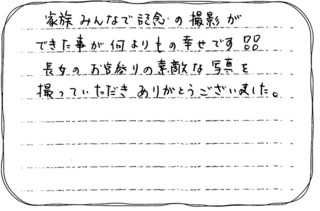 家族みんなで記念の撮影が
できた事が何よりもの幸せです!!
長女のお宮参りの素敵な写真を
撮っていただきありがとうございました。